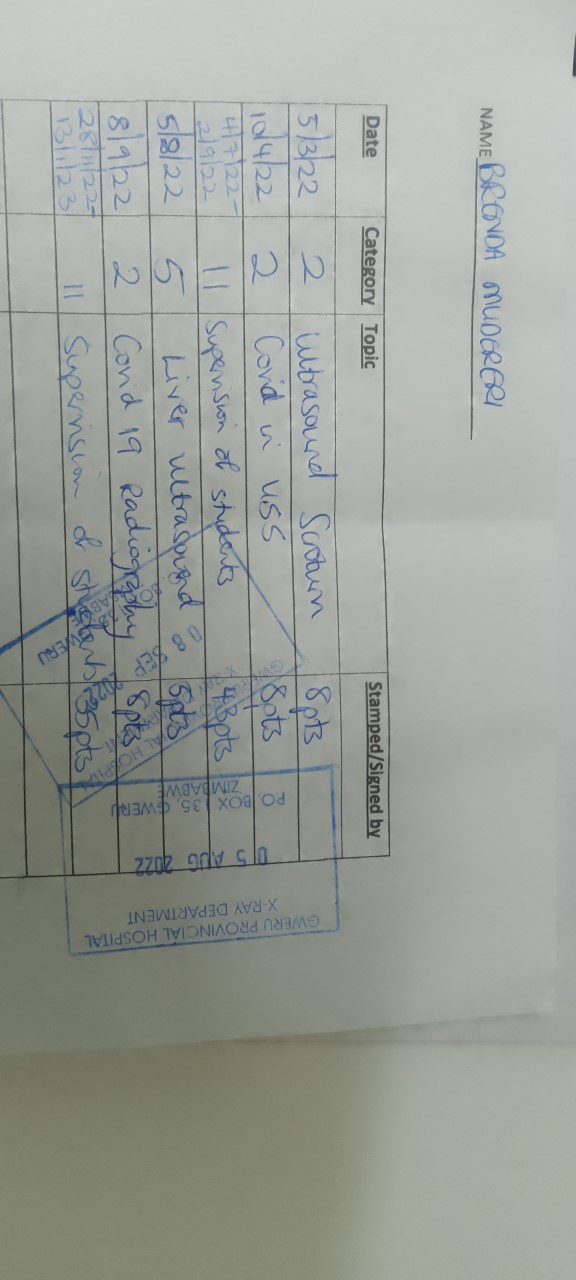 NAME BRENDA MUDERERI
Date Category Topic Stamped/Signed by
5/3/22 2 Ultrasound Scrotum 8pts
10/4/22 2 Covid in USS 8pts
4/7/22-
2/9/22 11 Supervision of students 48pts
5/8/22 5 Liver ultrasound 5pts
8/9/22 2 Covid 19 Radiography 8pts
28/11/22-
13/1/23 11 Supervision of students 35pts
GWERU PROVINCIAL HOSPITAL
X-RAY DEPARTMENT
05 AUG 2022
P.O. BOX 135, GWERU
ZIMBABWE
GWERU PROVINCIAL HOSPITAL
X-RAY DEPARTMENT
08 SEP 2022